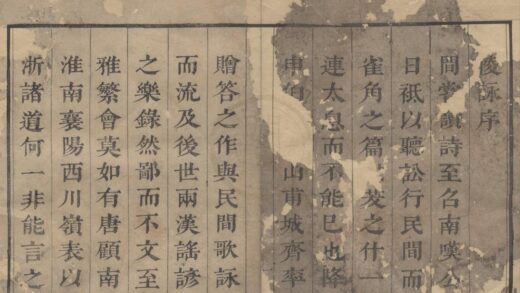 詠序
間嘗說詩至召南嘆公
日祗以聽訟行民間而
雀角之篇茇之什一
連太息而不能已也降
申山甫城齊率
贈答之作與民間歌詠
而流及後世兩漢謠諺
之樂錄然鄙而不文至
雅繁會莫如有唐顧南
淮南襄陽西川嶺表以
浙諸道何一非能言之